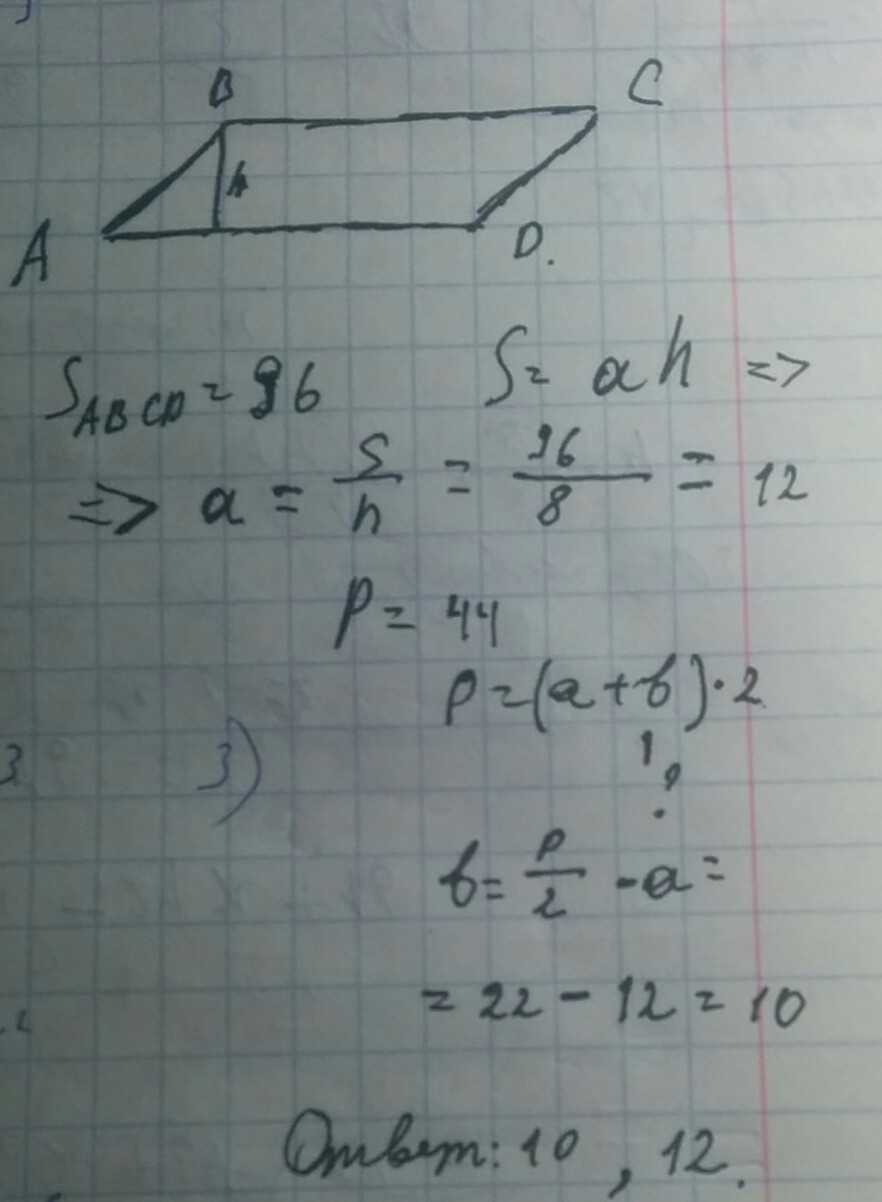 B C
h
A D.
S ABCD = 96 S = ah =>
=> a = S/h = 96/8 = 12
P = 44
P = (a + b) · 2
3 3) !
?
b = P/2 - a =
= 22 - 12 = 10
Ответ: 10, 12.